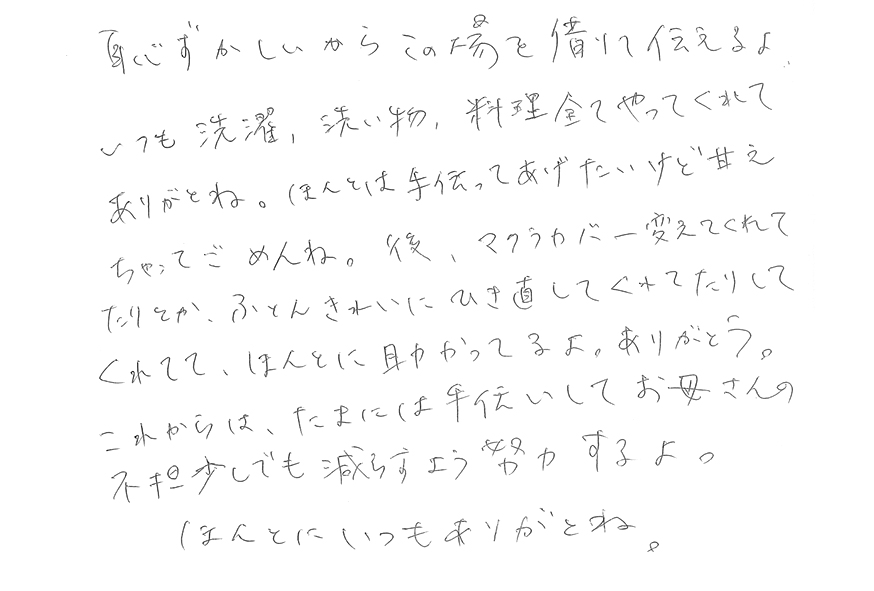 恥ずかしいからこの場を借りて伝えるよ
いつも洗濯,洗い物,料理全てやってくれて
ありがとね。ほんとは手伝ってあげたいけど甘え
ちゃってごめんね。後、マクラカバー変えてくれて
たりとか、ふとんきれいにひき直してくれてたりして
くれてて、ほんとに助かってるよ。ありがとう。
これからは、たまには手伝いしてお母さんの
不担少しでも減らすよう努力するよ。
ほんとにいつもありがとね。